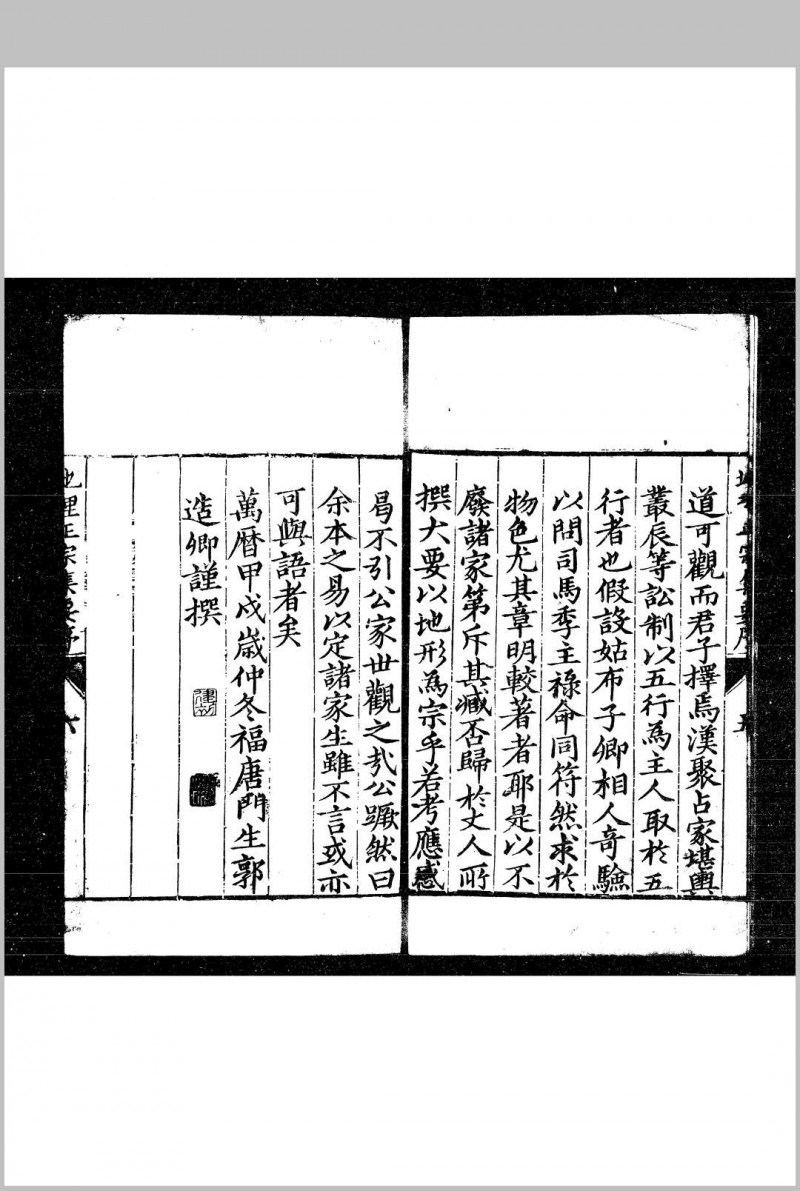 道可觀而君子擇焉漢聚占家堪輿
叢辰等訟制以五行為主人取於五
行者也假設姑布子卿相人奇驗
以問司馬季主祿命同符然求於
物色尤其章明較著者耶是以不
廢諸家第斥其臧否歸於丈人所
撰大要以地形為宗乎若考應感
曷不引公家世觀之哉公蹶然曰
余本之易以定諸家生雖不言或亦
可與語者矣
萬曆甲戍歲仲冬福唐門生郭
造卿謹撰
地理正宗集要序
六